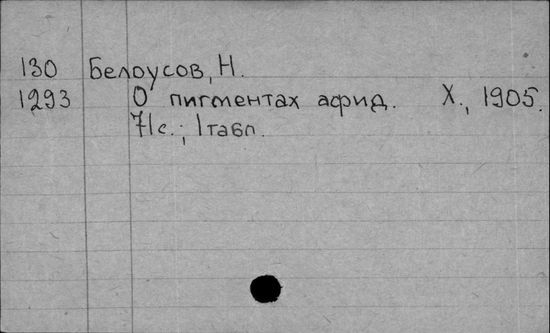 130 Белоусов, Н.
1293 О пигментах афид. Х., 1905.
71с.; 1табл.